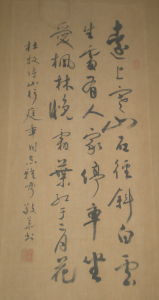 遠上寒山石徑斜白雲
生處有人家停車坐
愛楓林晚霜葉紅于二月花
杜牧诗山行 同志